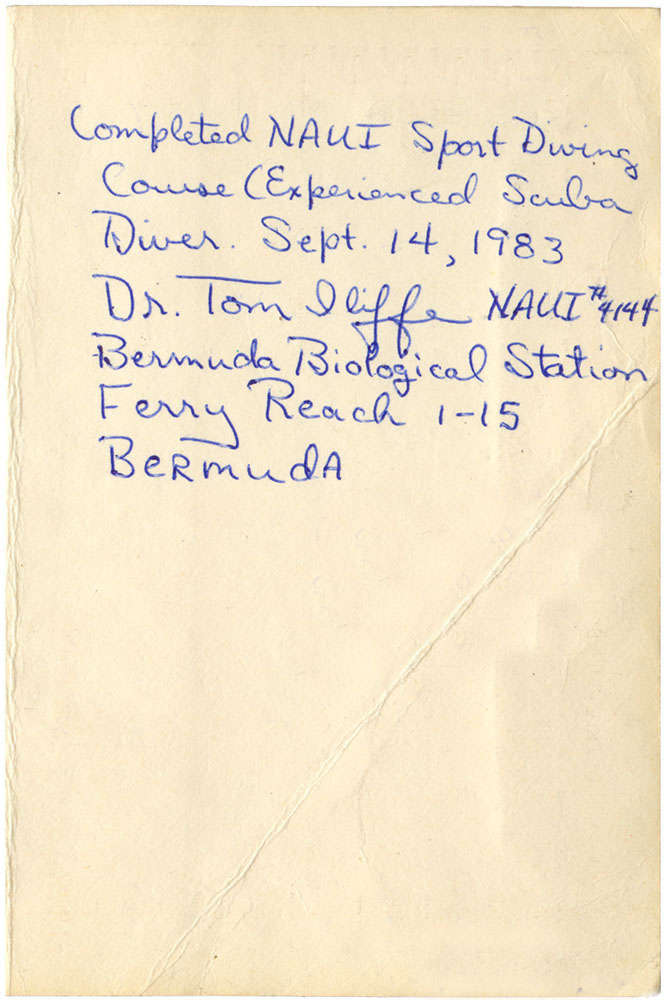 Completed NAUI Sport Diving
Course (Experienced Scuba
Diver. Sept. 14, 1983
Dr. Tom Iliffe NAUI #4144
Bermuda Biological Station
Ferry Reach 1-15
BERMUdA